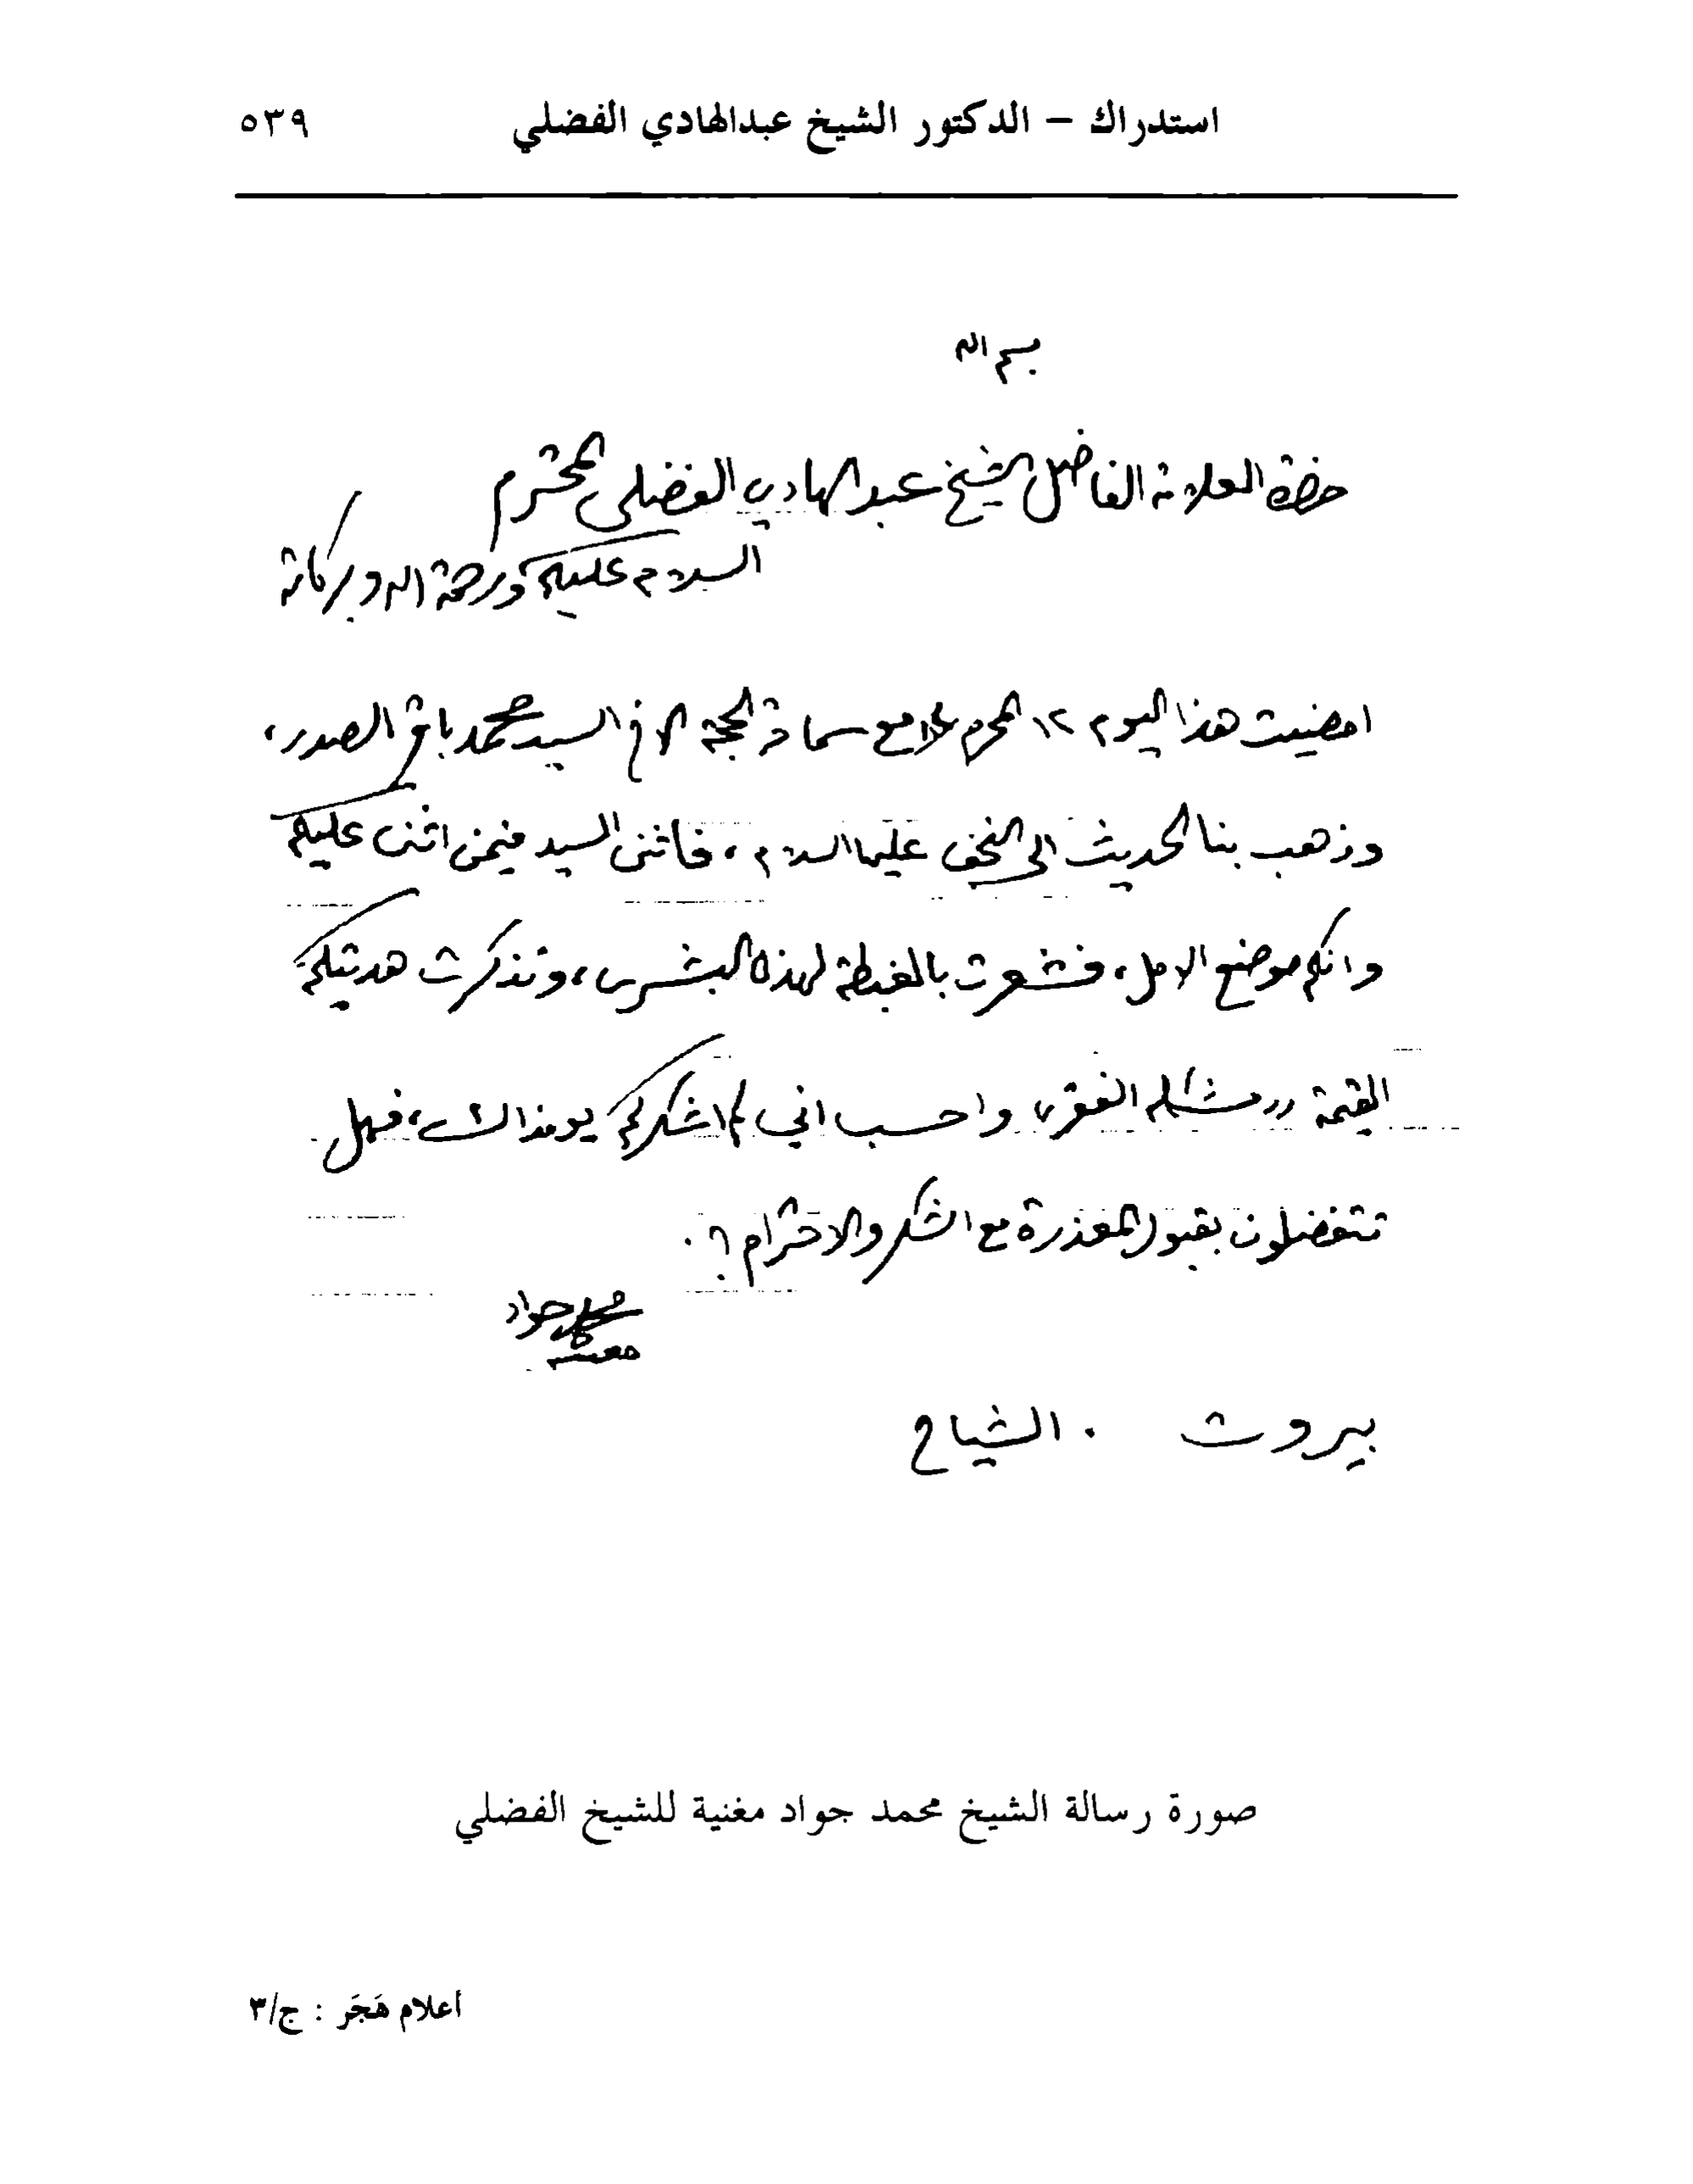 استدراك – الدكتور الشيخ عبدالهادي الفضلي
٥٣٩
بسم الله
حضرة العلامة الفاضل الشيخ عبد الهادي الفضلي المحترم
السلام عليكم ورحمة الله وبركاته
امضيت هذا اليوم ١٢ المحرم مع سماحة الحجة الاخ السيد محمد باقر الصدر،
وذهب بنا الحديث الى النجف عليها السلام، فاثنى السيد فيمن اثنى عليكم
وانكم موضع الامل، فشعرت بالغبطة لهذه البشرى، وتذكرت هديتكم
القيمة ((مشكلة الفقر)) واحسب اني لم اشكركم يومذاك، فهل
تتفضلون بقبول المعذرة مع الشكر والاحترام؟.
محمد جواد
مغنية
بيروت . الشياح
صورة رسالة الشيخ محمد جواد مغنية للشيخ الفضلي
أعلام هَجَر : ج/٣